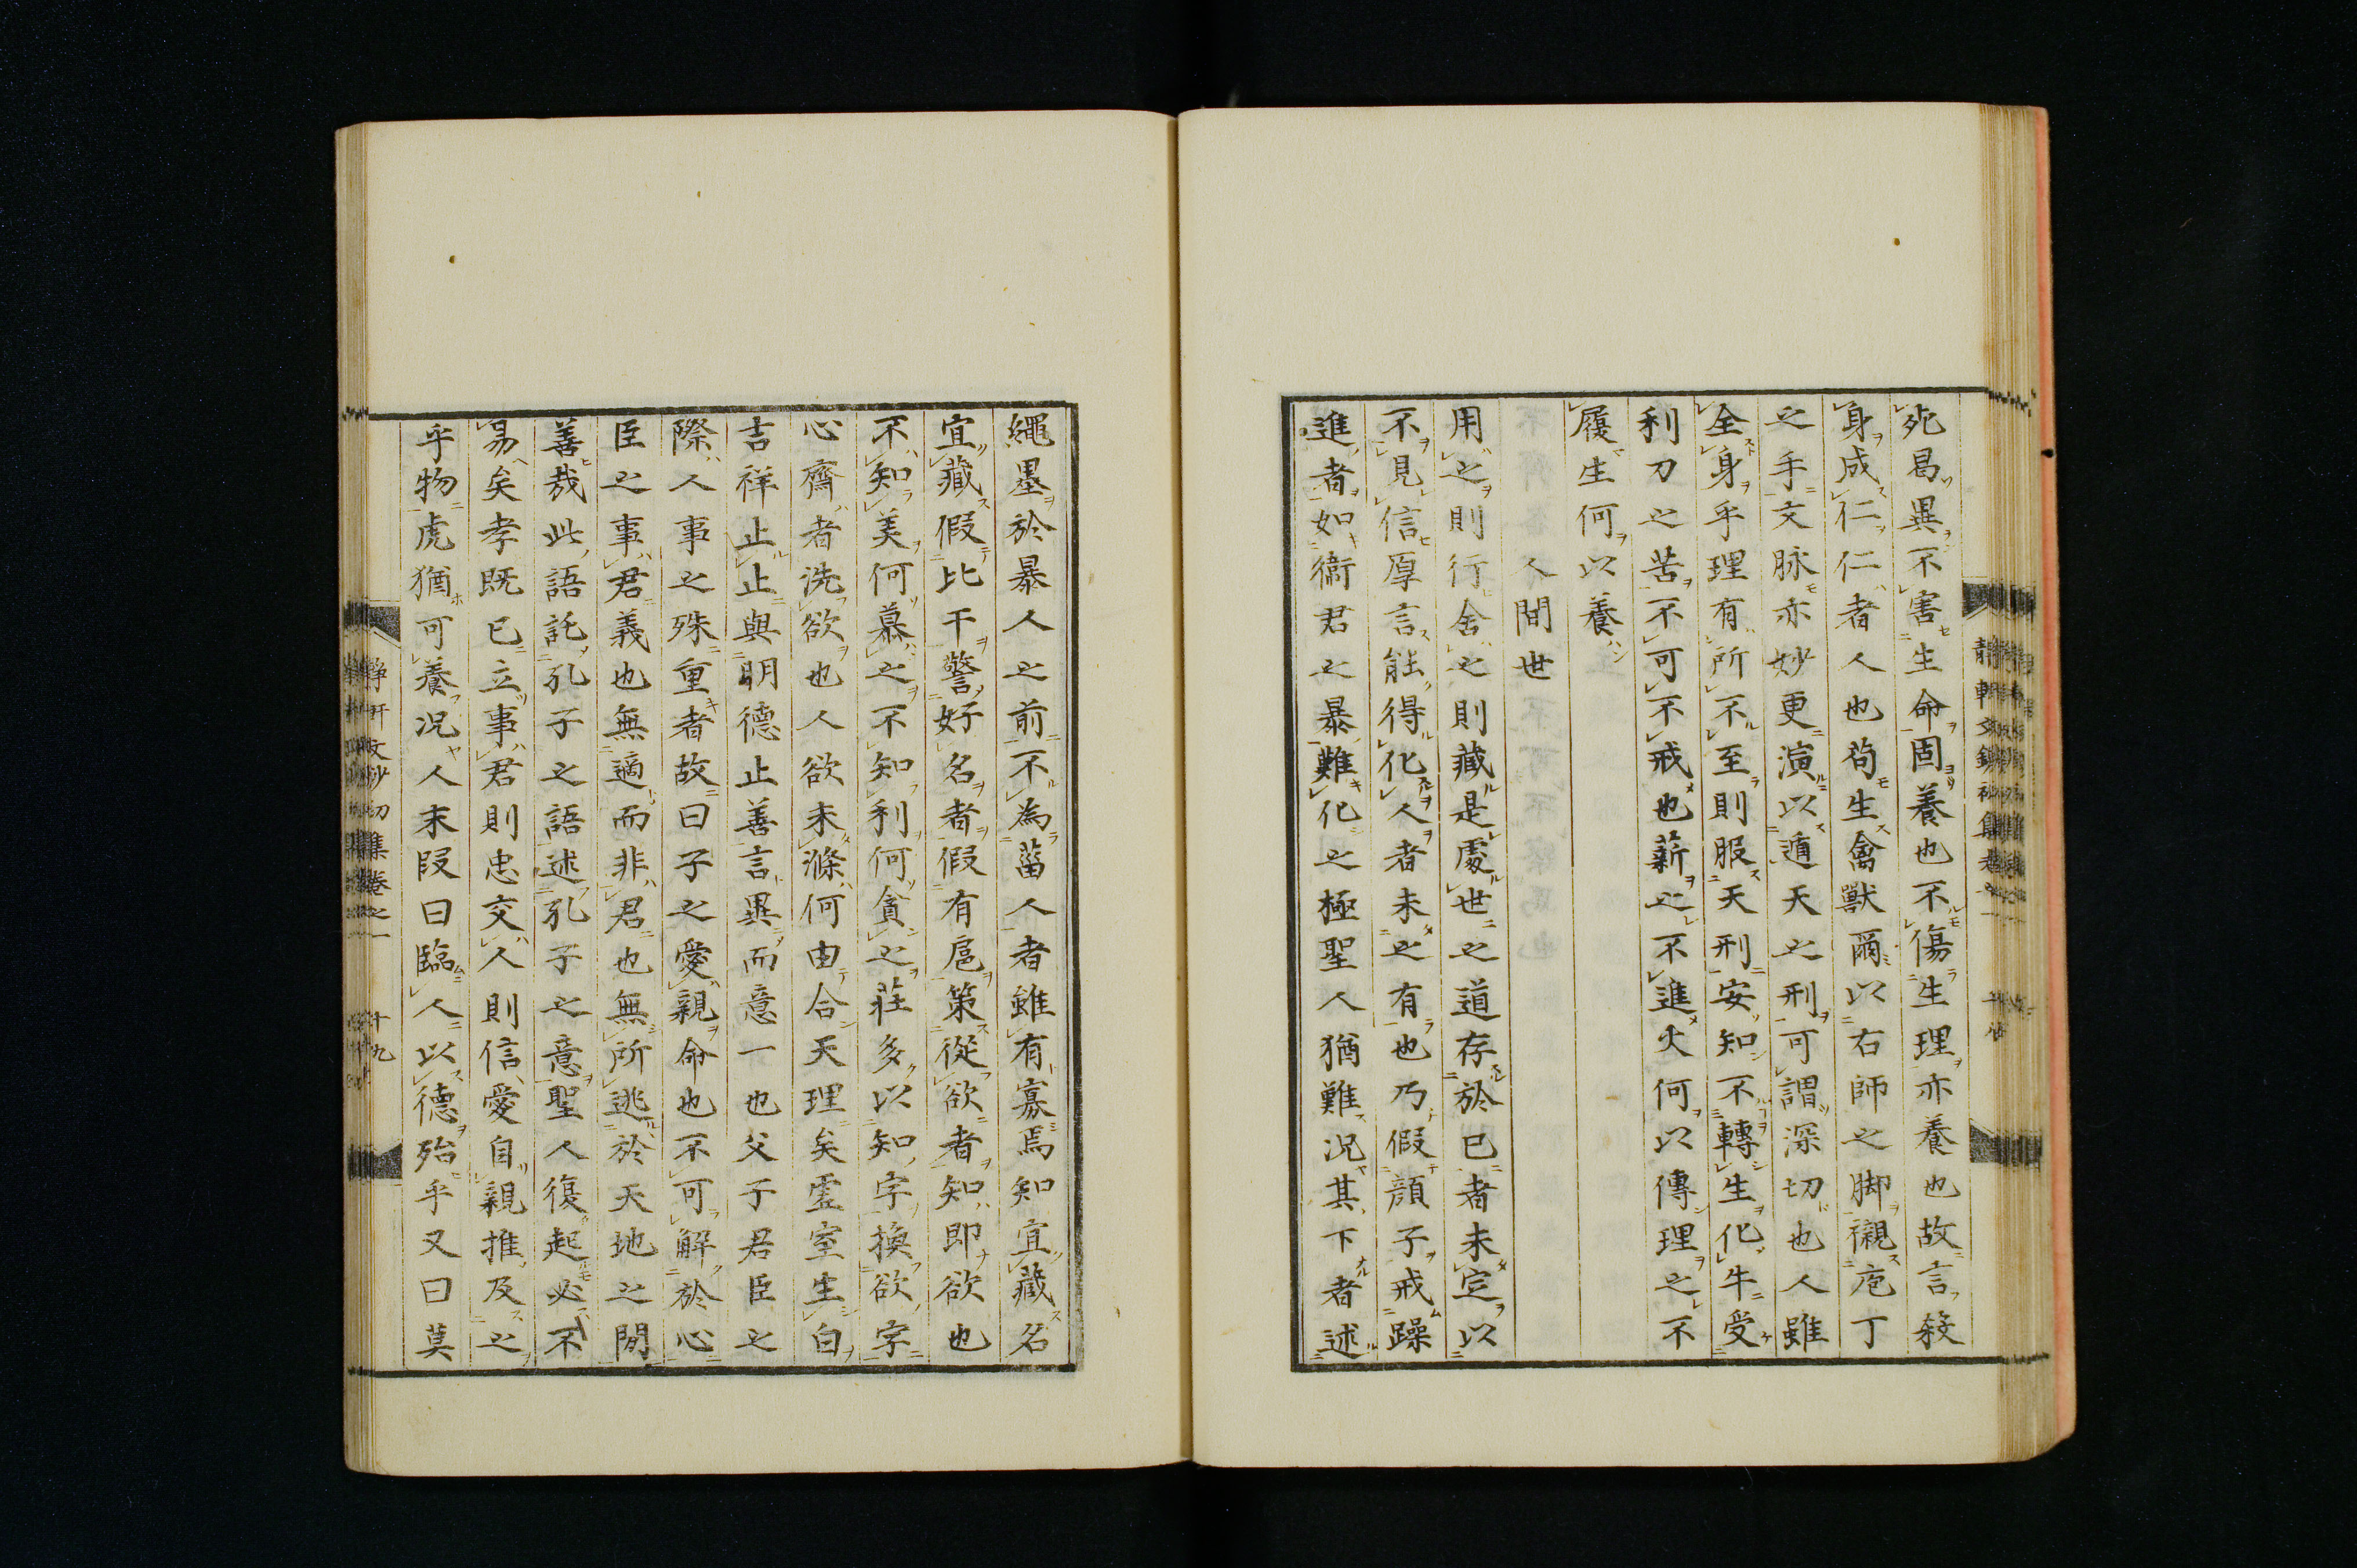 死曷異不害生命固養也不傷生理亦養也故言殺
身成仁仁者人也苟生禽獸爾以右師之脚襯庖丁
之手文脉亦妙更演以遁天之刑可謂深切也人雖
全身乎理有所不至則服天刑安知不轉生化牛受
利刀之苦不可不戒也薪之不進火何以傳理之不
履生何以養
人間世
用之則行舍之則藏是處世之道存於已者未定以
不見信厚言能得化人者未之有也乃假顔子戒躁
進者如衞君之暴難化之極聖人猶難况其下者述
繩墨於暴人之前不為菑人者雖有寡焉知宜藏名
宜藏假比干警好名者假有扈策從欲者知即欲也
不知美何慕之不知利何貪之荘多以知字換欲字
心齊者洗欲也人欲未滌何由合天理矣虛室生白
吉祥止止與明德止善言異而意一也父子君臣之
際人事之殊重者故曰子之愛親命也不可解於心
臣之事君義也無適而非君也無所逃於天地之間
善哉此語託孔子之語述孔子之意聖人復起必不
易矣孝既已立事君則忠交人則信愛自親推及之
乎物虎猶可養况人末段曰臨人以德殆乎又曰莫
靜軒文鈔初集卷之一 十九